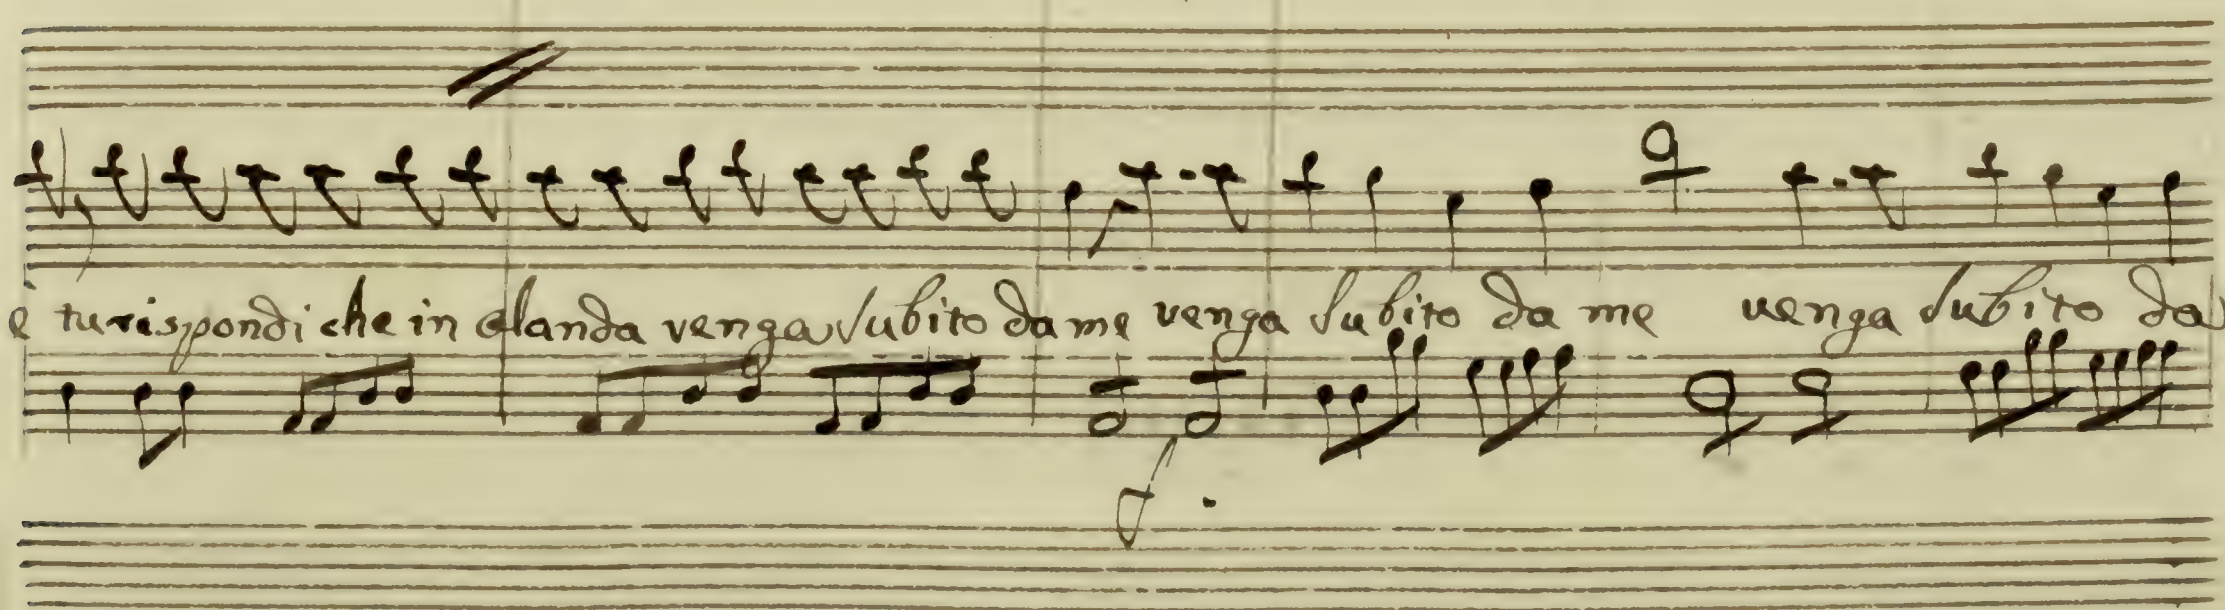 e tu rispondi che in olanda venga subito da me venga subito da me venga subito da
f.